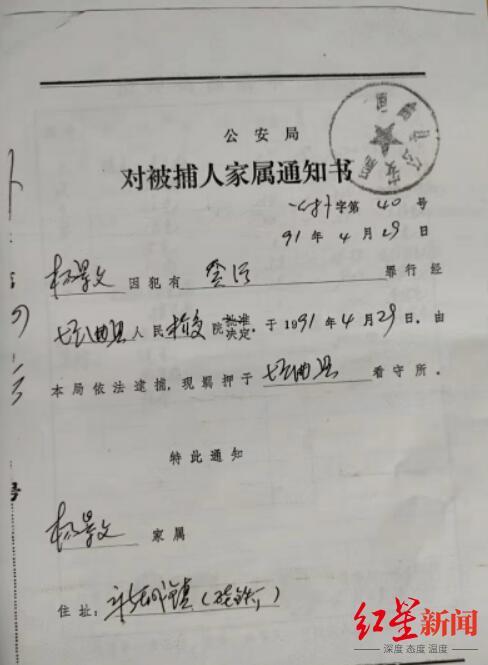 公安局
对被捕人家属通知书
字第 40 号
91 年 4 月 29 日
杨景文 因犯有 贪污 罪行经
垣曲县 人民 检察 院 批准 决定, 于 1991 年 4 月 29 日, 由
本局依法逮捕, 现羁押于 垣曲县 看守所。
特此通知
杨景文 家属
住址:
红星新闻
深度 态度 温度